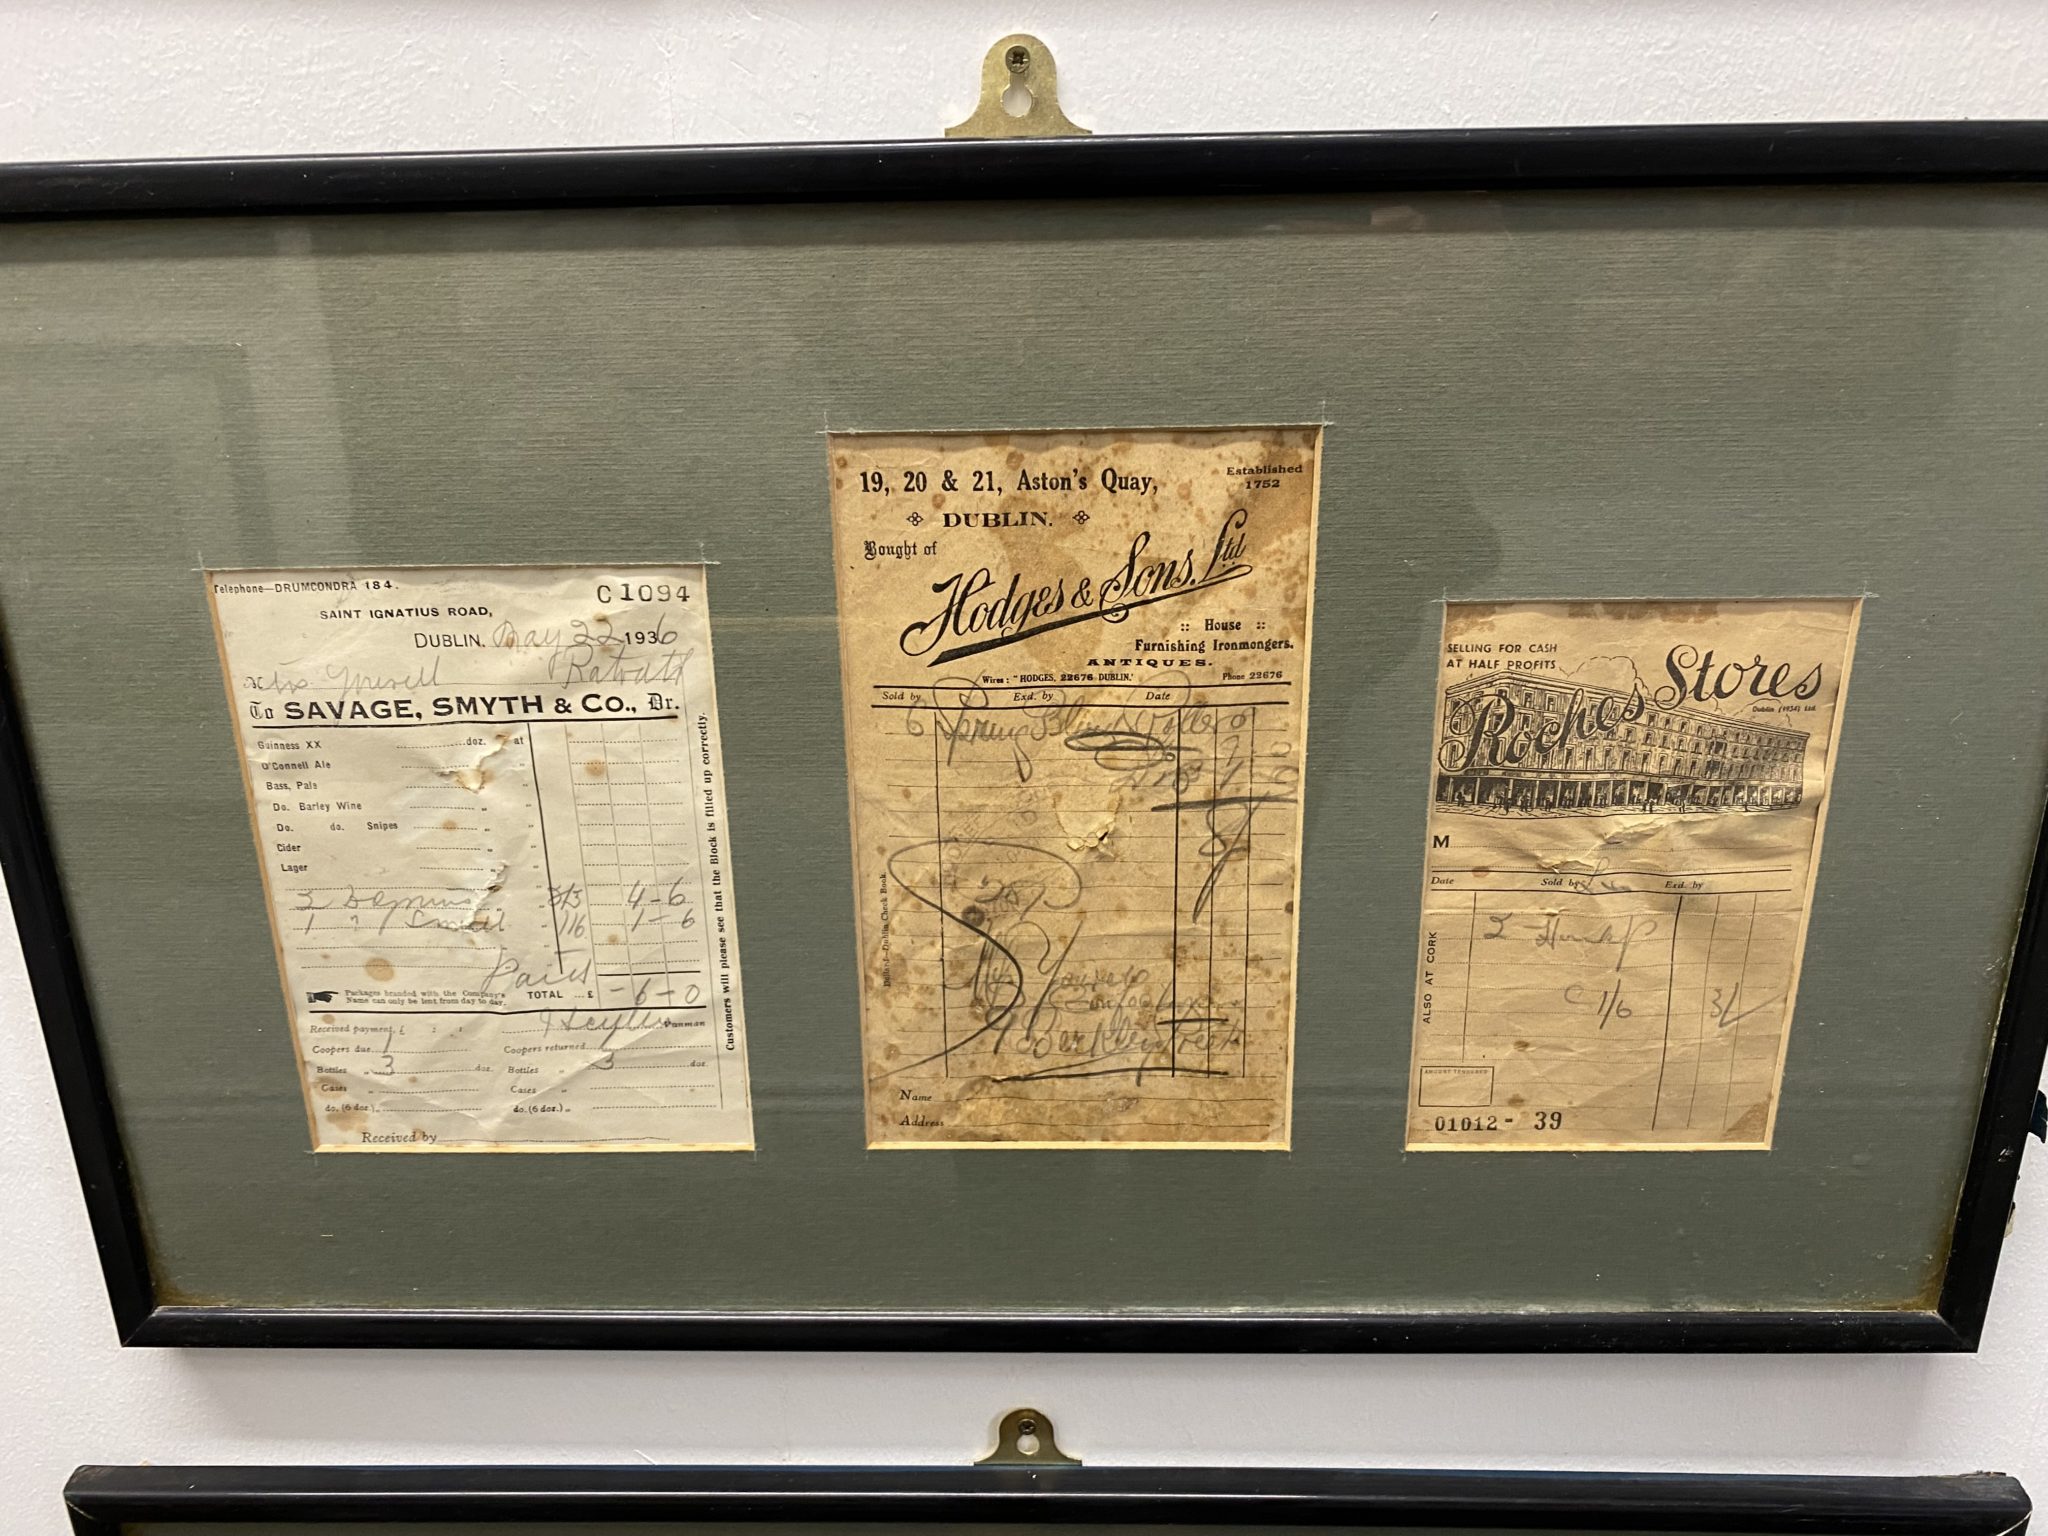 Telephone—DRUMCONDRA 184.
C1094
SAINT IGNATIUS ROAD,
DUBLIN. May 22 1936
To SAVAGE, SMYTH & Co., Dr.
Guinness XX doz. at
O'Connell Ale „ „
Bass, Pale „ „
Do. Barley Wine „ „
Do. do. Snipes „ „
Cider „ „
Lager „ „
4-6
1 Small 1/6 1-6
Paid
Packages branded with the Company's
Name can only be lent from day to day.
TOTAL ...£ -6-0
Received payment, £ : : Vanman
Coopers due 1 Coopers returned
Bottles „ 3 doz. Bottles „ 3 doz.
Cases „ Cases „
do. (6 doz.) „ do. (6 doz.) „
Received by
Customers will please see that the Block is filled up correctly.
19, 20 & 21, Aston's Quay,
Established
1752
DUBLIN.
Bought of
Hodges & Sons, Ltd
:: House ::
Furnishing Ironmongers.
ANTIQUES.
Wires: "HODGES, 22676 DUBLIN." Phone 22676
Sold by Exd. by Date
6 Spring Blind
Berkley Street
Name
Address
SELLING FOR CASH
AT HALF PROFITS
Roches Stores
Dublin (1934) Ltd.
M
Date Sold by Exd. by
ALSO AT CORK
1/6 3/
AMOUNT TENDERED
01012- 39